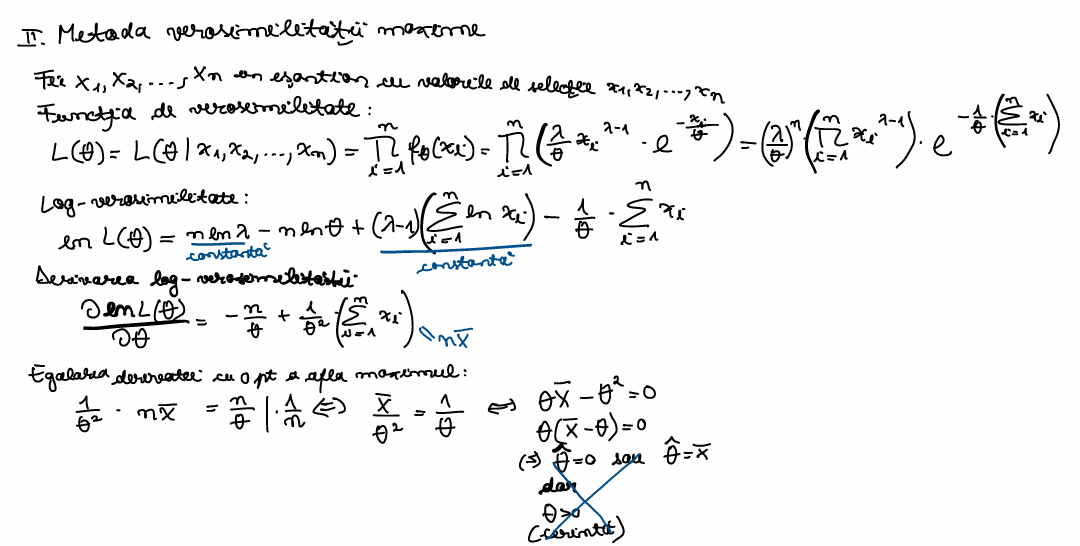 II. Metoda verosimilității maxime
Fie X₁, X₂, ..., Xₙ un eșantion cu valorile de selecție x₁, x₂, ..., xₙ
Funcția de verosimilitate:
L(θ) = L(θ | x₁, x₂, ..., xₙ) = ∏_{i=1}^{n} f_θ(xᵢ) = ∏_{i=1}^{n} (λ/θ xᵢ^{λ-1} · e^{-xᵢ/θ}) = (λ/θ)ⁿ (∏_{i=1}^{n} xᵢ^{λ-1}) · e^{-1/θ · (∑_{i=1}^{n} xᵢ)}
Log-verosimilitate:
ln L(θ) = n ln λ - n ln θ + (λ-1)(∑_{i=1}^{n} ln xᵢ) - 1/θ · ∑_{i=1}^{n} xᵢ
constantă constantă
Derivarea log-verosimilității:
∂ ln L(θ)/∂θ = -n/θ + 1/θ² · (∑_{i=1}^{n} xᵢ) nx̄
Egalarea derivatei cu 0 pt a afla maximul:
1/θ² · nx̄ = n/θ | · 1/n ⇔ x̄/θ² = 1/θ ⇔ θx̄ - θ² = 0
θ(x̄ - θ) = 0
(⇒) θ̂ = 0 sau θ̂ = x̄
dar
θ > 0
(cerință)